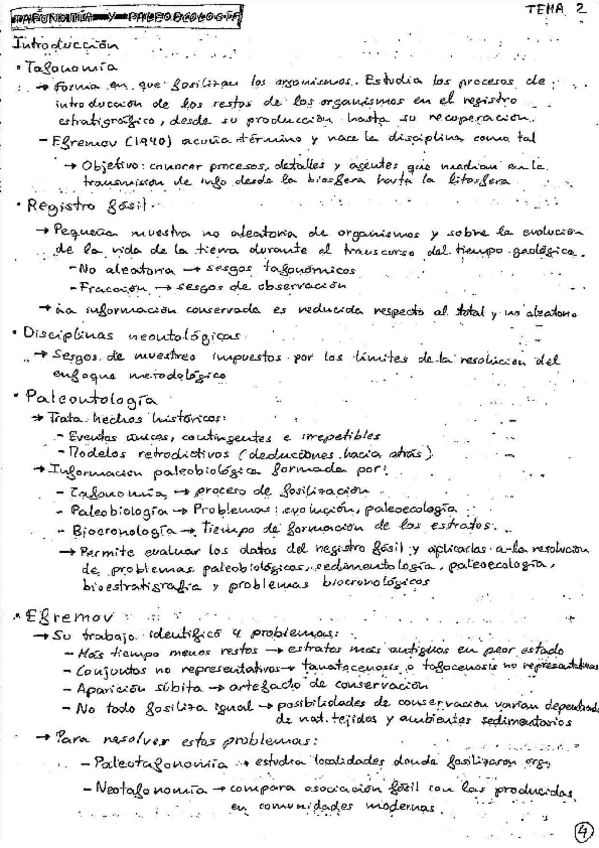 TAFONOMÍA Y PALEOECOLOGÍA
TEMA 2
Introducción
• Tafonomía
→ Forma en que fosilizan los organismos. Estudia los procesos de
introducción de los restos de los organismos en el registro
estratigráfico, desde su producción hasta su recuperación.
- Efremov (1940) acuña término y nace la disciplina como tal
→ Objetivo: conocer procesos, detalles y agentes que median en la
transmisión de info desde la biosfera hasta la litosfera
• Registro fósil.
→ Pequeña muestra no aleatoria de organismos y sobre la evolución
de la vida de la tierra durante el transcurso del tiempo geológico.
- No aleatoria → sesgos tafonómicos
- Fracción → sesgos de observación
→ La información conservada es reducida respecto al total y no aleatorio
• Disciplinas neontológicas
→ Sesgos de muestreo impuestos por los límites de la resolución del
enfoque metodológico
• Paleontología
→ Trata hechos históricos:
- Eventos únicos, contingentes e irrepetibles
- Modelos retrodictivos (deducciones hacia atrás)
→ Información paleobiológica formada por:
- Tafonomía → proceso de fosilización
- Paleobiología → Problemas: evolución, paleoecología
- Biocronología → Tiempo de formación de los estratos.
→ Permite evaluar los datos del registro fósil y aplicarlos a la resolución
de problemas paleobiológicos, sedimentología, paleoecología,
bioestratigrafía y problemas biocronológicos
• Efremov
→ Su trabajo identificó 4 problemas:
- Más tiempo menos restos → estratos más antiguos en peor estado
- Conjuntos no representativos → tanatocenosis o tafocenosis no representativas
- Aparición súbita → artefacto de conservación
- No todo fosiliza igual → posibilidades de conservación varían dependiendo
de nat. tejidos y ambientes sedimentarios
→ Para resolver estos problemas:
- Paleotafonomía → estudia localidades donde fosilizaron org.
- Neotafonomía → compara asociación fósil con las producidas
en comunidades modernas.
4